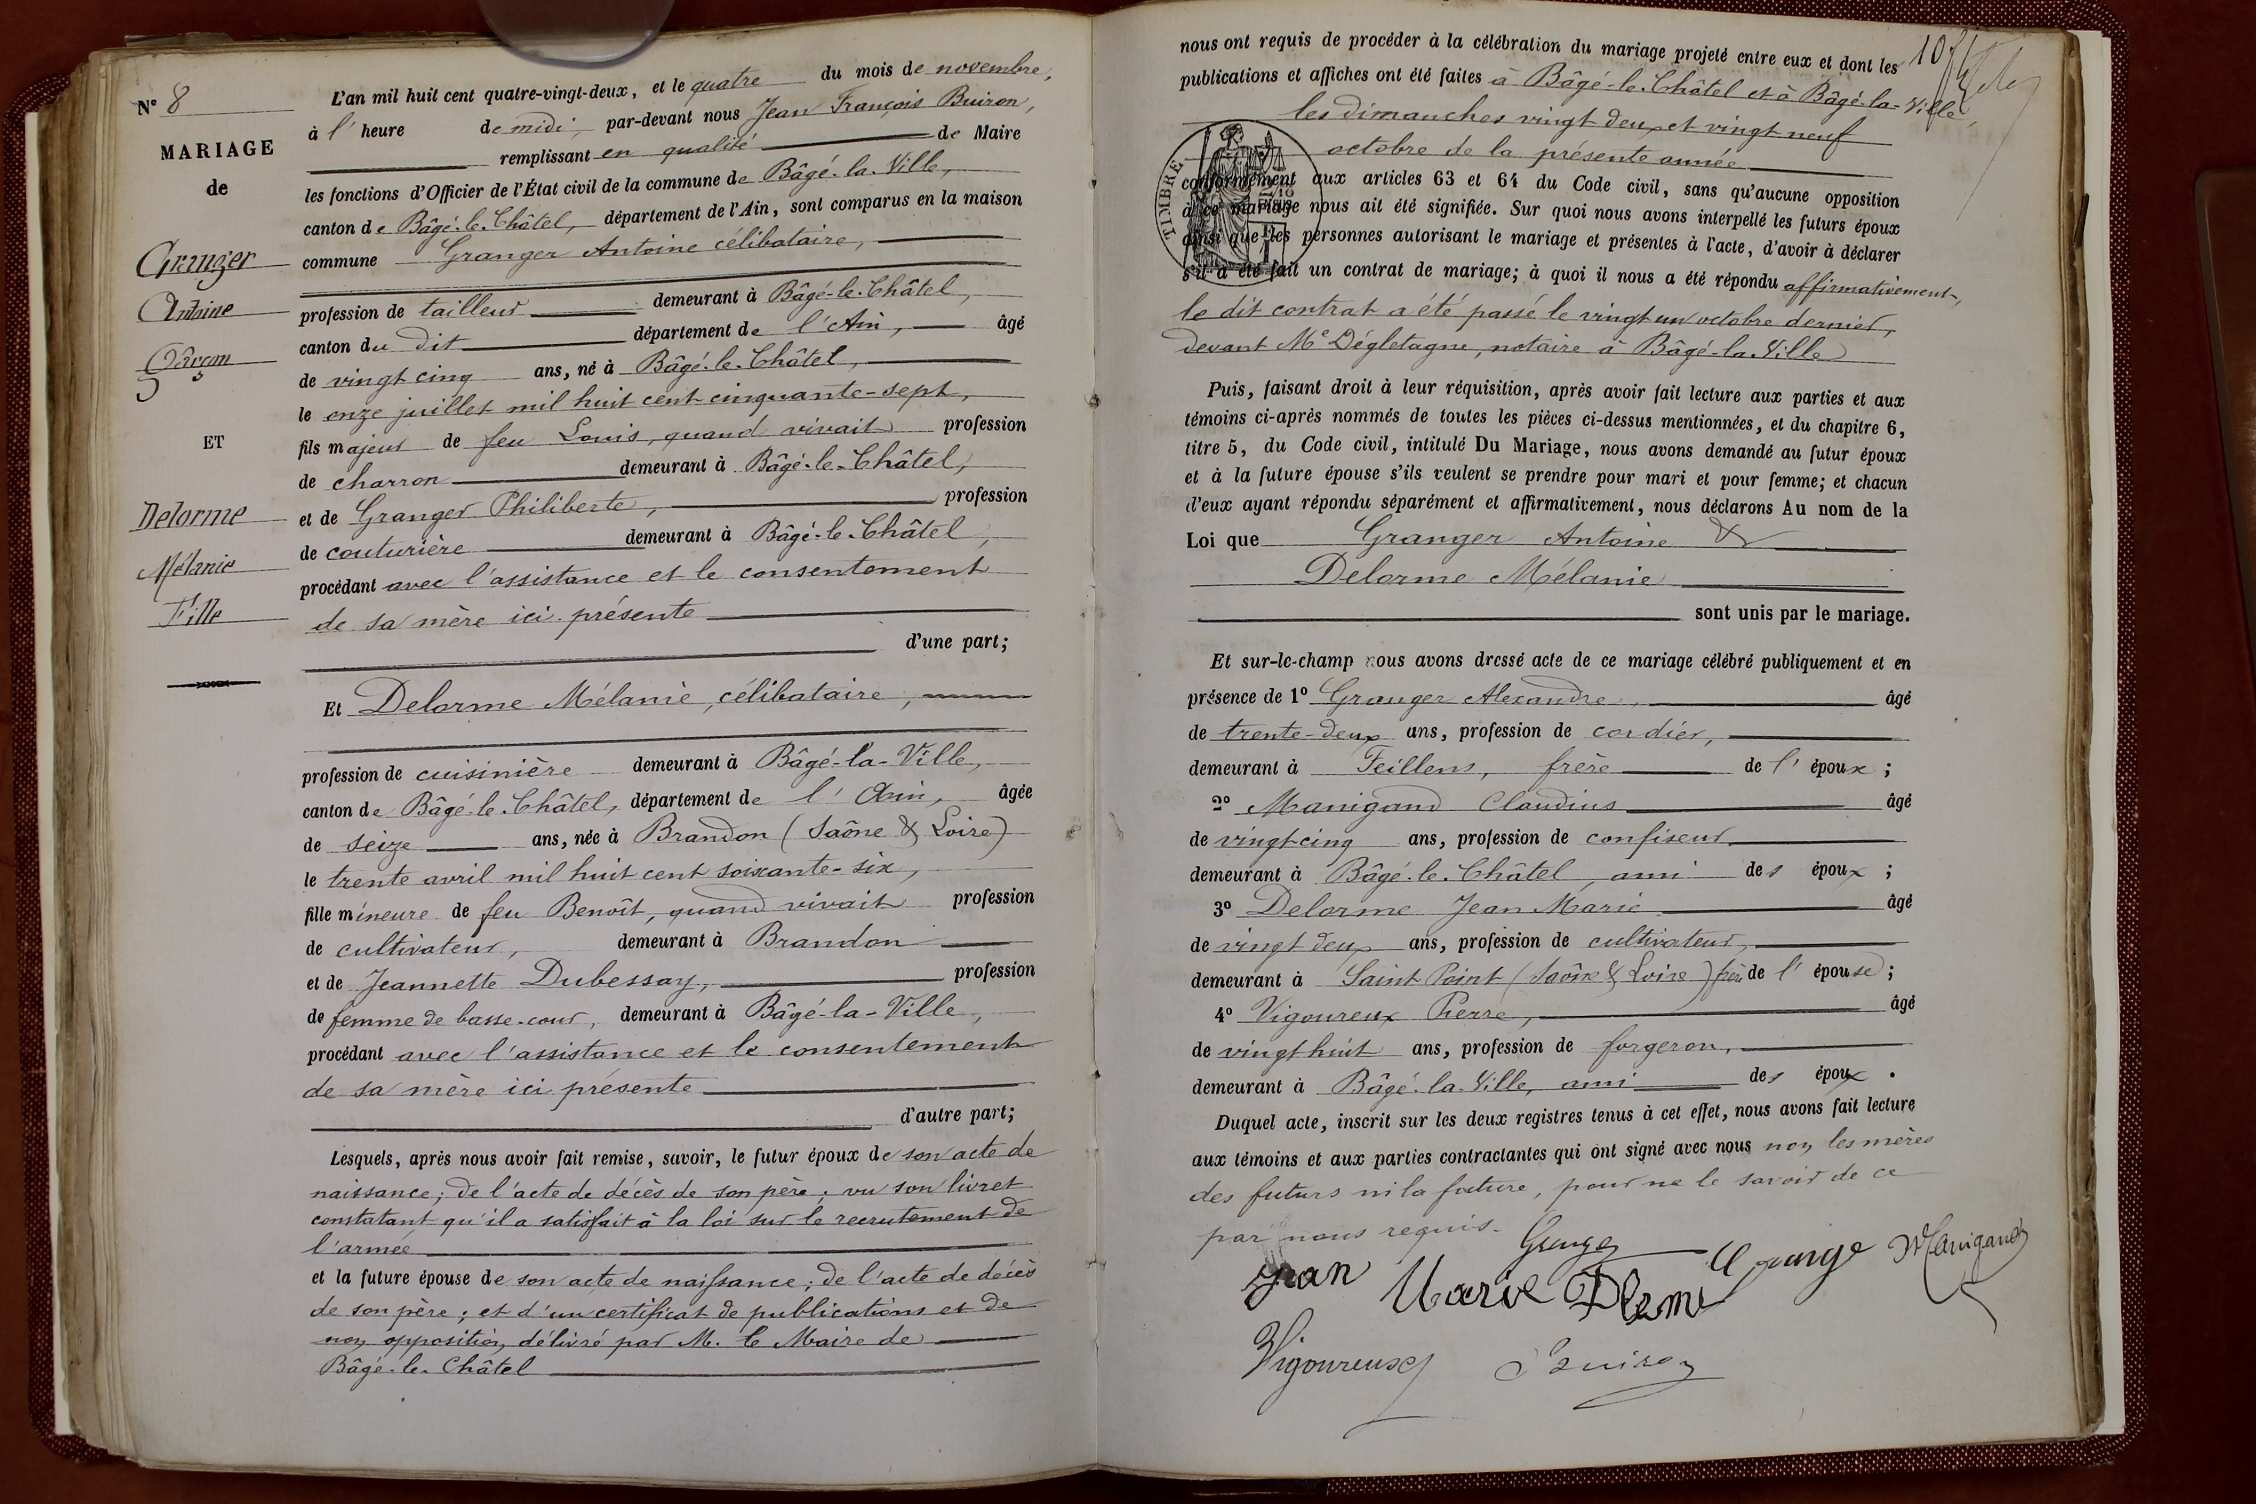 N° 8
MARIAGE
de
Granger
Antoine
Garçon
ET
Delorme
Mélanie
Fille
L'an mil huit cent quatre-vingt-deux, et le quatre du mois de novembre,
à l' heure de midi, par-devant nous Jean François Buiron,
remplissant en qualité de Maire
les fonctions d'Officier de l'État civil de la commune de Bâgé-la-Ville,
canton de Bâgé-le-Châtel, département de l'Ain, sont comparus en la maison
commune Granger Antoine célibataire,
profession de tailleur demeurant à Bâgé-le-Châtel,
canton du dit département de l'Ain, âgé
de vingt cinq ans, né à Bâgé-le-Châtel,
le onze juillet mil huit cent cinquante-sept,
fils majeur de feu Louis, quand vivait profession
de charron demeurant à Bâgé-le-Châtel,
et de Granger Philiberte, profession
de couturière demeurant à Bâgé-le-Châtel,
procédant avec l'assistance et le consentement
de sa mère ici présente
d'une part;
Et Delorme Mélanie, célibataire,
profession de cuisinière demeurant à Bâgé-la-Ville,
canton de Bâgé-le-Châtel, département de l'Ain, âgée
de seize ans, née à Brandon (Saône & Loire)
le trente avril mil huit cent soixante-six,
fille mineure de feu Benoît, quand vivait profession
de cultivateur, demeurant à Brandon
et de Jeannette Dubessay, profession
de femme de basse-cour, demeurant à Bâgé-la-Ville,
procédant avec l'assistance et le consentement
de sa mère ici présente
d'autre part;
Lesquels, après nous avoir fait remise, savoir, le futur époux de son acte de
naissance; de l'acte de décès de son père; vu son livret
constatant qu'il a satisfait à la loi sur le recrutement de
l'armée
et la future épouse de son acte de naissance; de l'acte de décès
de son père; et d'un certificat de publications et de
non opposition, délivré par M. le Maire de
Bâgé-le-Châtel
nous ont requis de procéder à la célébration du mariage projeté entre eux et dont les
publications et affiches ont été faites à Bâgé-le-Châtel et à Bâgé-la-Ville,
les dimanches vingt deux et vingt neuf
octobre de la présente année
TIMBRE
conformément aux articles 63 et 64 du Code civil, sans qu'aucune opposition
à ce mariage nous ait été signifiée. Sur quoi nous avons interpellé les futurs époux
ainsi que les personnes autorisant le mariage et présentes à l'acte, d'avoir à déclarer
s'il a été fait un contrat de mariage; à quoi il nous a été répondu affirmativement,
le dit contrat a été passé le vingt un octobre dernier,
devant Me Dégletagne, notaire à Bâgé-la-Ville
Puis, faisant droit à leur réquisition, après avoir fait lecture aux parties et aux
témoins ci-après nommés de toutes les pièces ci-dessus mentionnées, et du chapitre 6,
titre 5, du Code civil, intitulé Du Mariage, nous avons demandé au futur époux
et à la future épouse s'ils veulent se prendre pour mari et pour femme; et chacun
d'eux ayant répondu séparément et affirmativement, nous déclarons Au nom de la
Loi que Granger Antoine &
Delorme Mélanie
sont unis par le mariage.
Et sur-le-champ nous avons dressé acte de ce mariage célébré publiquement et en
présence de 1° Granger Alexandre âgé
de trente-deux ans, profession de cordier,
demeurant à Feillens, frère de l' époux;
2° Manigand Claudius âgé
de vingt-cinq ans, profession de confiseur,
demeurant à Bâgé-le-Châtel, ami des époux;
3° Delorme Jean Marie âgé
de vingt deux ans, profession de cultivateur,
demeurant à Saint Point (Saône & Loire) frère de l' épouse;
4° Vigoureux Pierre, âgé
de vingt huit ans, profession de forgeron,
demeurant à Bâgé-la-Ville, ami des époux.
Duquel acte, inscrit sur les deux registres tenus à cet effet, nous avons fait lecture
aux témoins et aux parties contractantes qui ont signé avec nous non les mères
des futurs ni la future, pour ne le savoir de ce
par nous requis.
Granger
Jean Marie Delorme Granger Manigand
Vigoureux Buiron